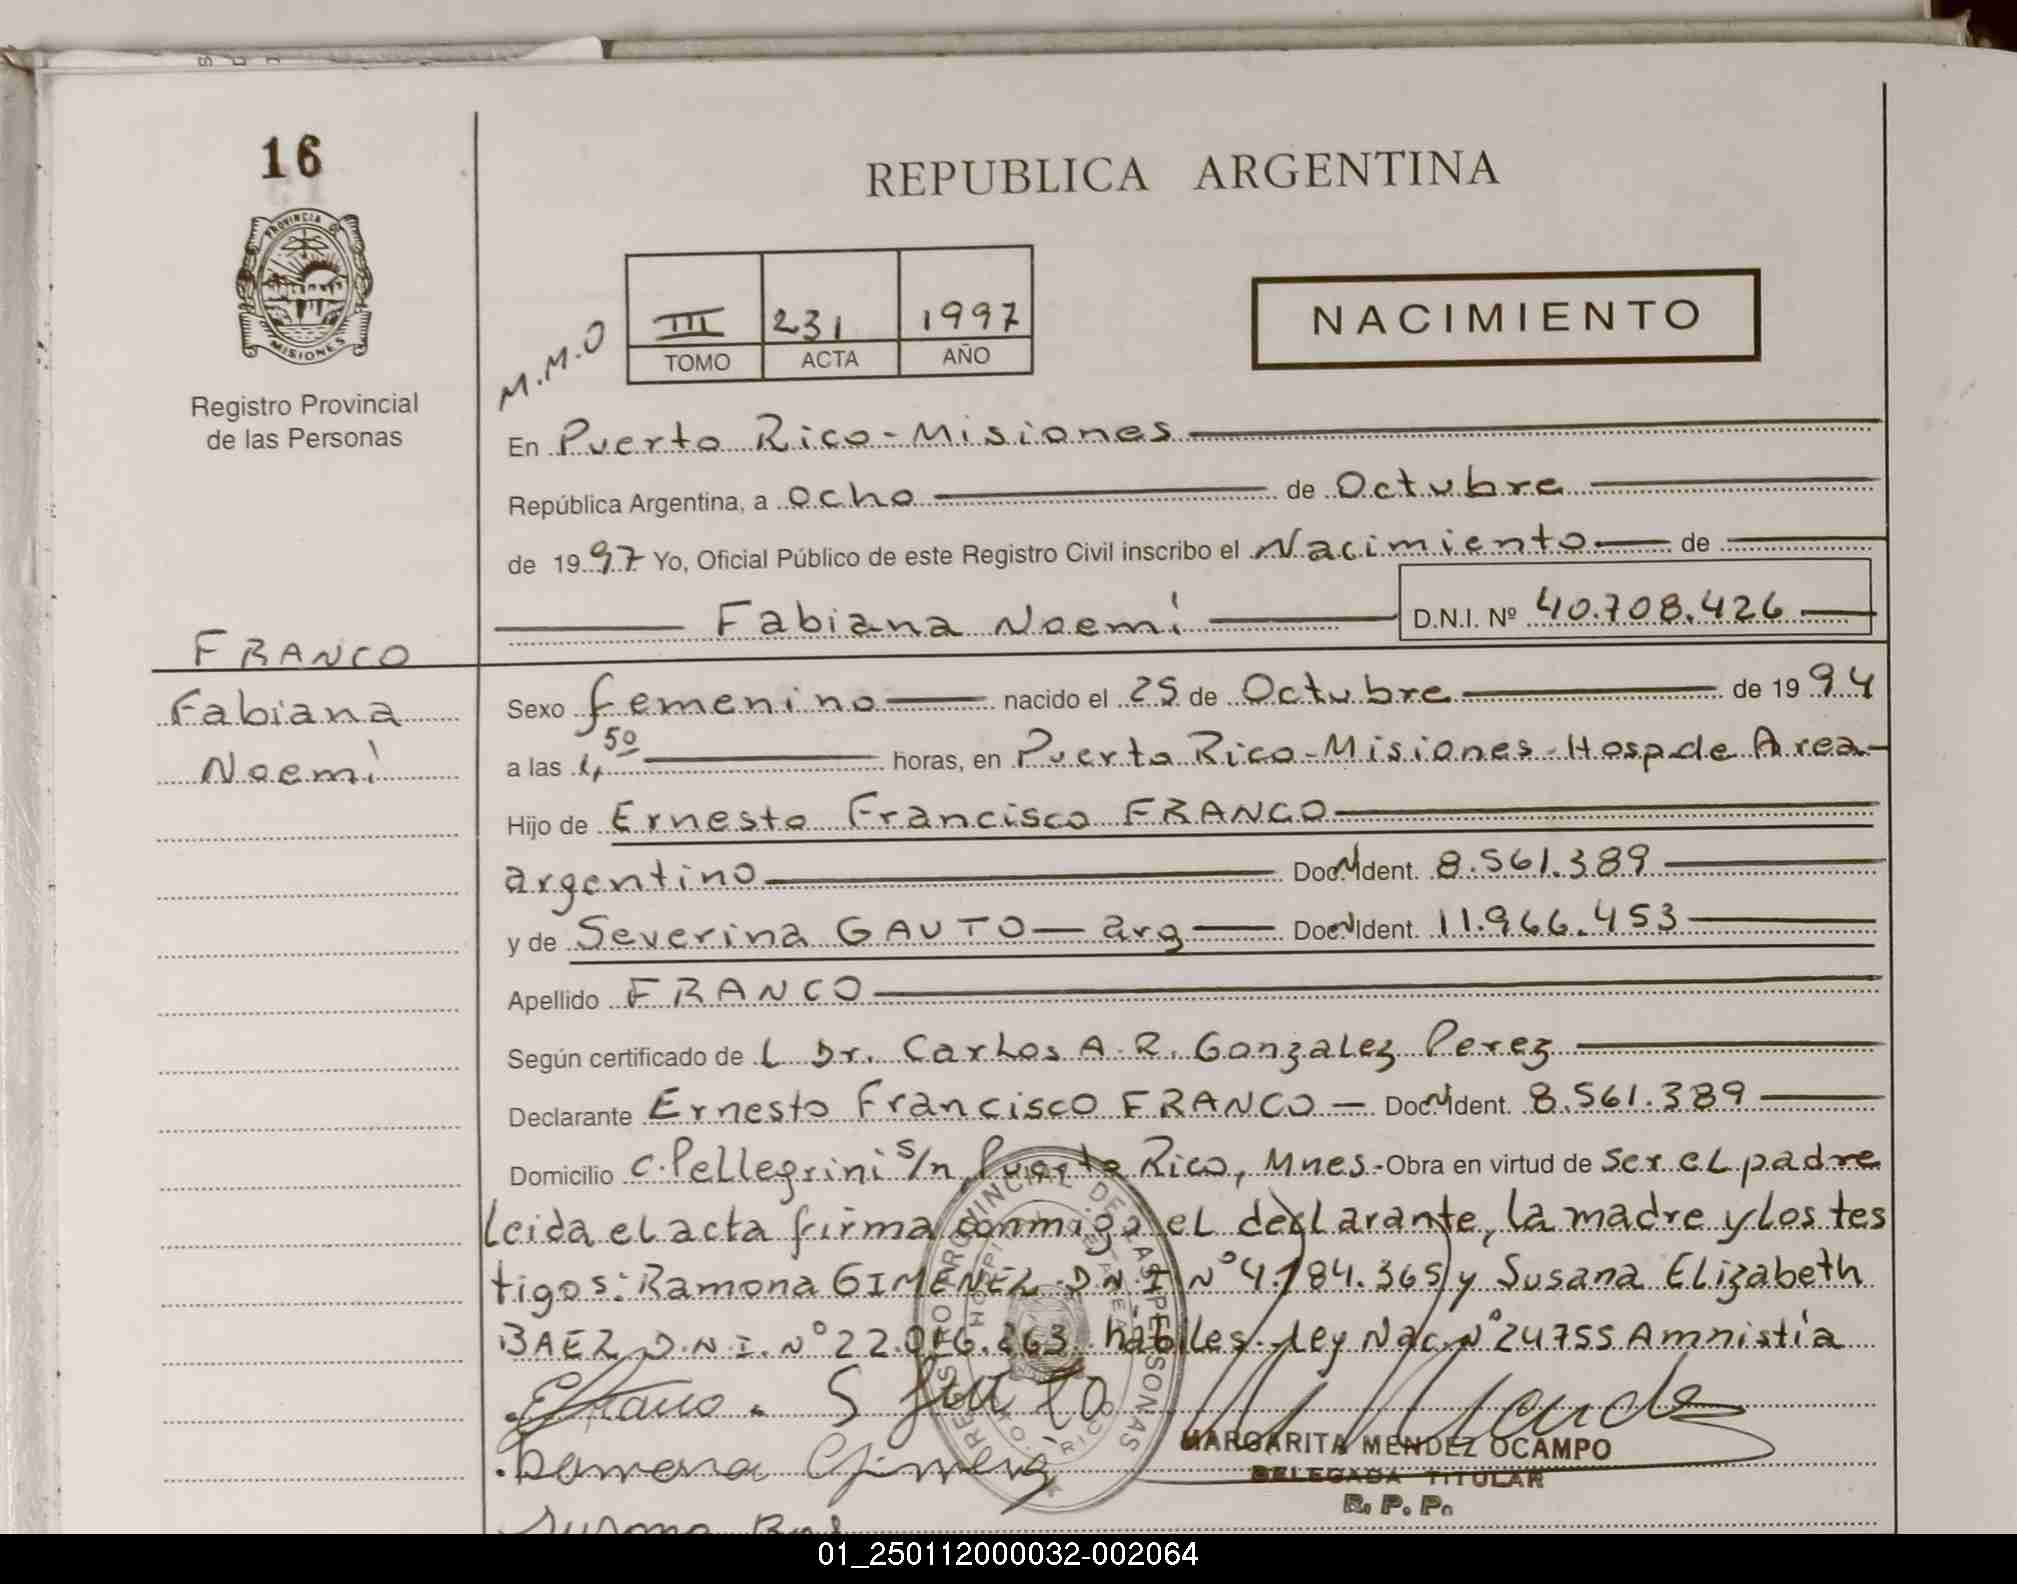 16
PROVINCIA DE
MISIONES
Registro Provincial
de las Personas
REPUBLICA ARGENTINA
M.M.O
III 231 1997
TOMO ACTA AÑO
NACIMIENTO
En Puerto Rico - Misiones
República Argentina, a ocho de Octubre
de 1997 Yo, Oficial Público de este Registro Civil inscribo el Nacimiento de
Fabiana Noemí D.N.I. Nº 40.708.426
FRANCO
Fabiana
Noemí
Sexo femenino nacido el 25 de Octubre de 1994
a las 4,50 horas, en Puerto Rico - Misiones - Hosp de Area
Hijo de Ernesto Francisco FRANCO
argentino Doc. Ident. 8.561.389
y de Severina GAUTO - arg Doc. Ident. 11.966.453
Apellido FRANCO
Según certificado de L Dr. Carlos A. R. Gonzalez Perez
Declarante Ernesto Francisco FRANCO - Doc. Ident. 8.561.389
Domicilio C. Pellegrini s/n, Puerto Rico, Mnes.- Obra en virtud de ser el padre
Leida el acta firma conmigo el declarante, la madre y los tes
tigos: Ramona GIMENEZ D.N.I. Nº 4.184.365 y Susana Elizabeth
BAEZ D.N.I. Nº habiles. Ley Nac. Nº 24755 Amnistía
EFranco. S Gauto
Ramona Gimenez
MARGARITA MENDEZ OCAMPO
DELEGADA TITULAR
R. P. P.
REGISTRO PROVINCIAL DE LAS PERSONAS
Susana
01_250112000032-002064